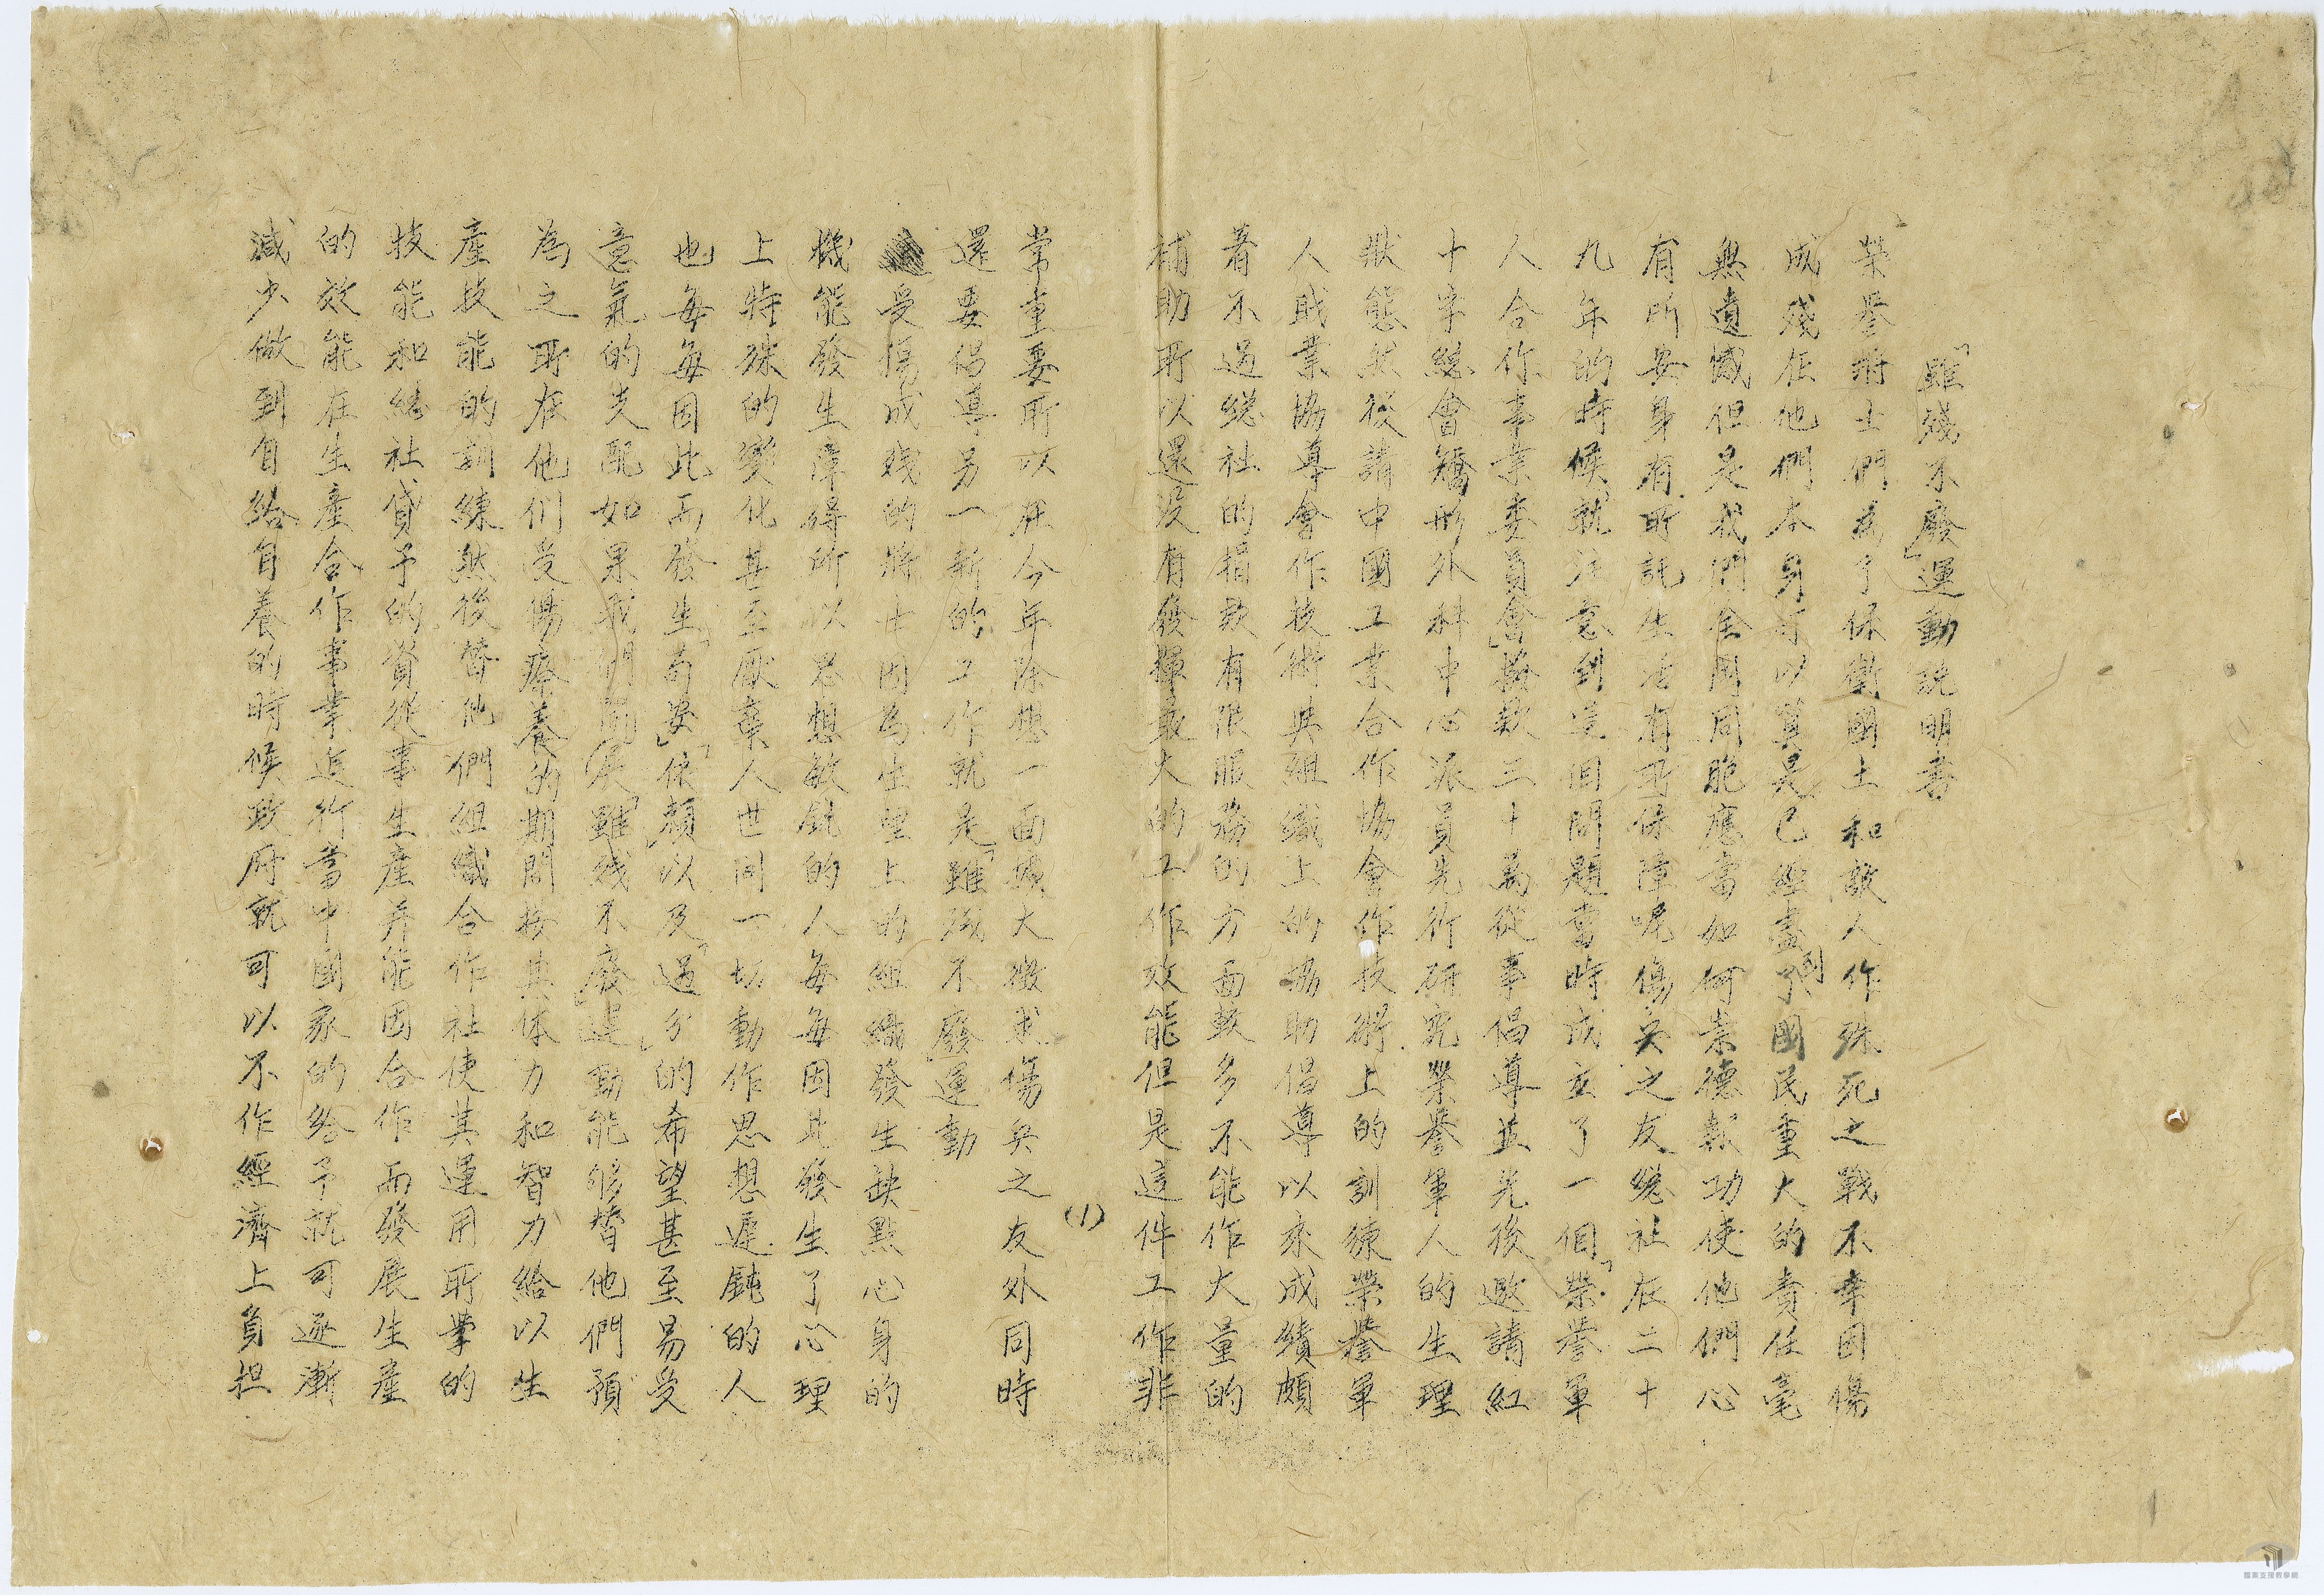 「雖殘不廢」運動說明書
榮譽將士們為了保衛國土和敵人作殊死之戰不幸因傷
成殘在他們本身可以算是已經盡了對國民重大的責任毫
無遺憾但是我們全國同胞應當如何崇德報功使他們心
有所安身有所託生活有所保障呢傷兵之友總社在二十
九年的時候就注意到這個問題當時成立了一個「榮譽軍
人合作事業委員會」撥款三十萬從事倡導並先後邀請紅
十字總會矯形外科中心派員先行研究榮譽軍人的生理
狀態然後請中國工業合作協會作技術上的訓練榮譽軍
人職業協導會作技術與組織上的協助倡導以來成績頗
著不過總社的捐款有限服務的方面較多不能作大量的
補助所以還沒有發揮最大的工作效能但是這件工作非
(1)
常重要所以在今年除想一面擴大徵求傷兵之友外同時
還要倡導另一新的工作就是「雖殘不廢」運動
受傷成殘的將士因為生理上的組織發生缺點心身的
機能發生障得所以思想敏銳的人每每因此發生了心理
上特殊的變化甚至厭棄人世間一切動作思想遲鈍的人
也每每因此而發生「苟安」「依賴」以及「過分」的希望甚至易受
意氣的支配如果我們開展「雖殘不廢」運動能够替他們預
為之所在他们受傷療養的期間按其体力和智力給以生
產技能的訓練然後替他們組織合作社使其運用所學的
技能和總社貸予的資從事生產并能因合作而發展生產
的效能在生產合作事業進行當中國家的給予就可逐漸
減少做到自給自養的時候政府就可以不作經濟上負担
檔案支援教學網